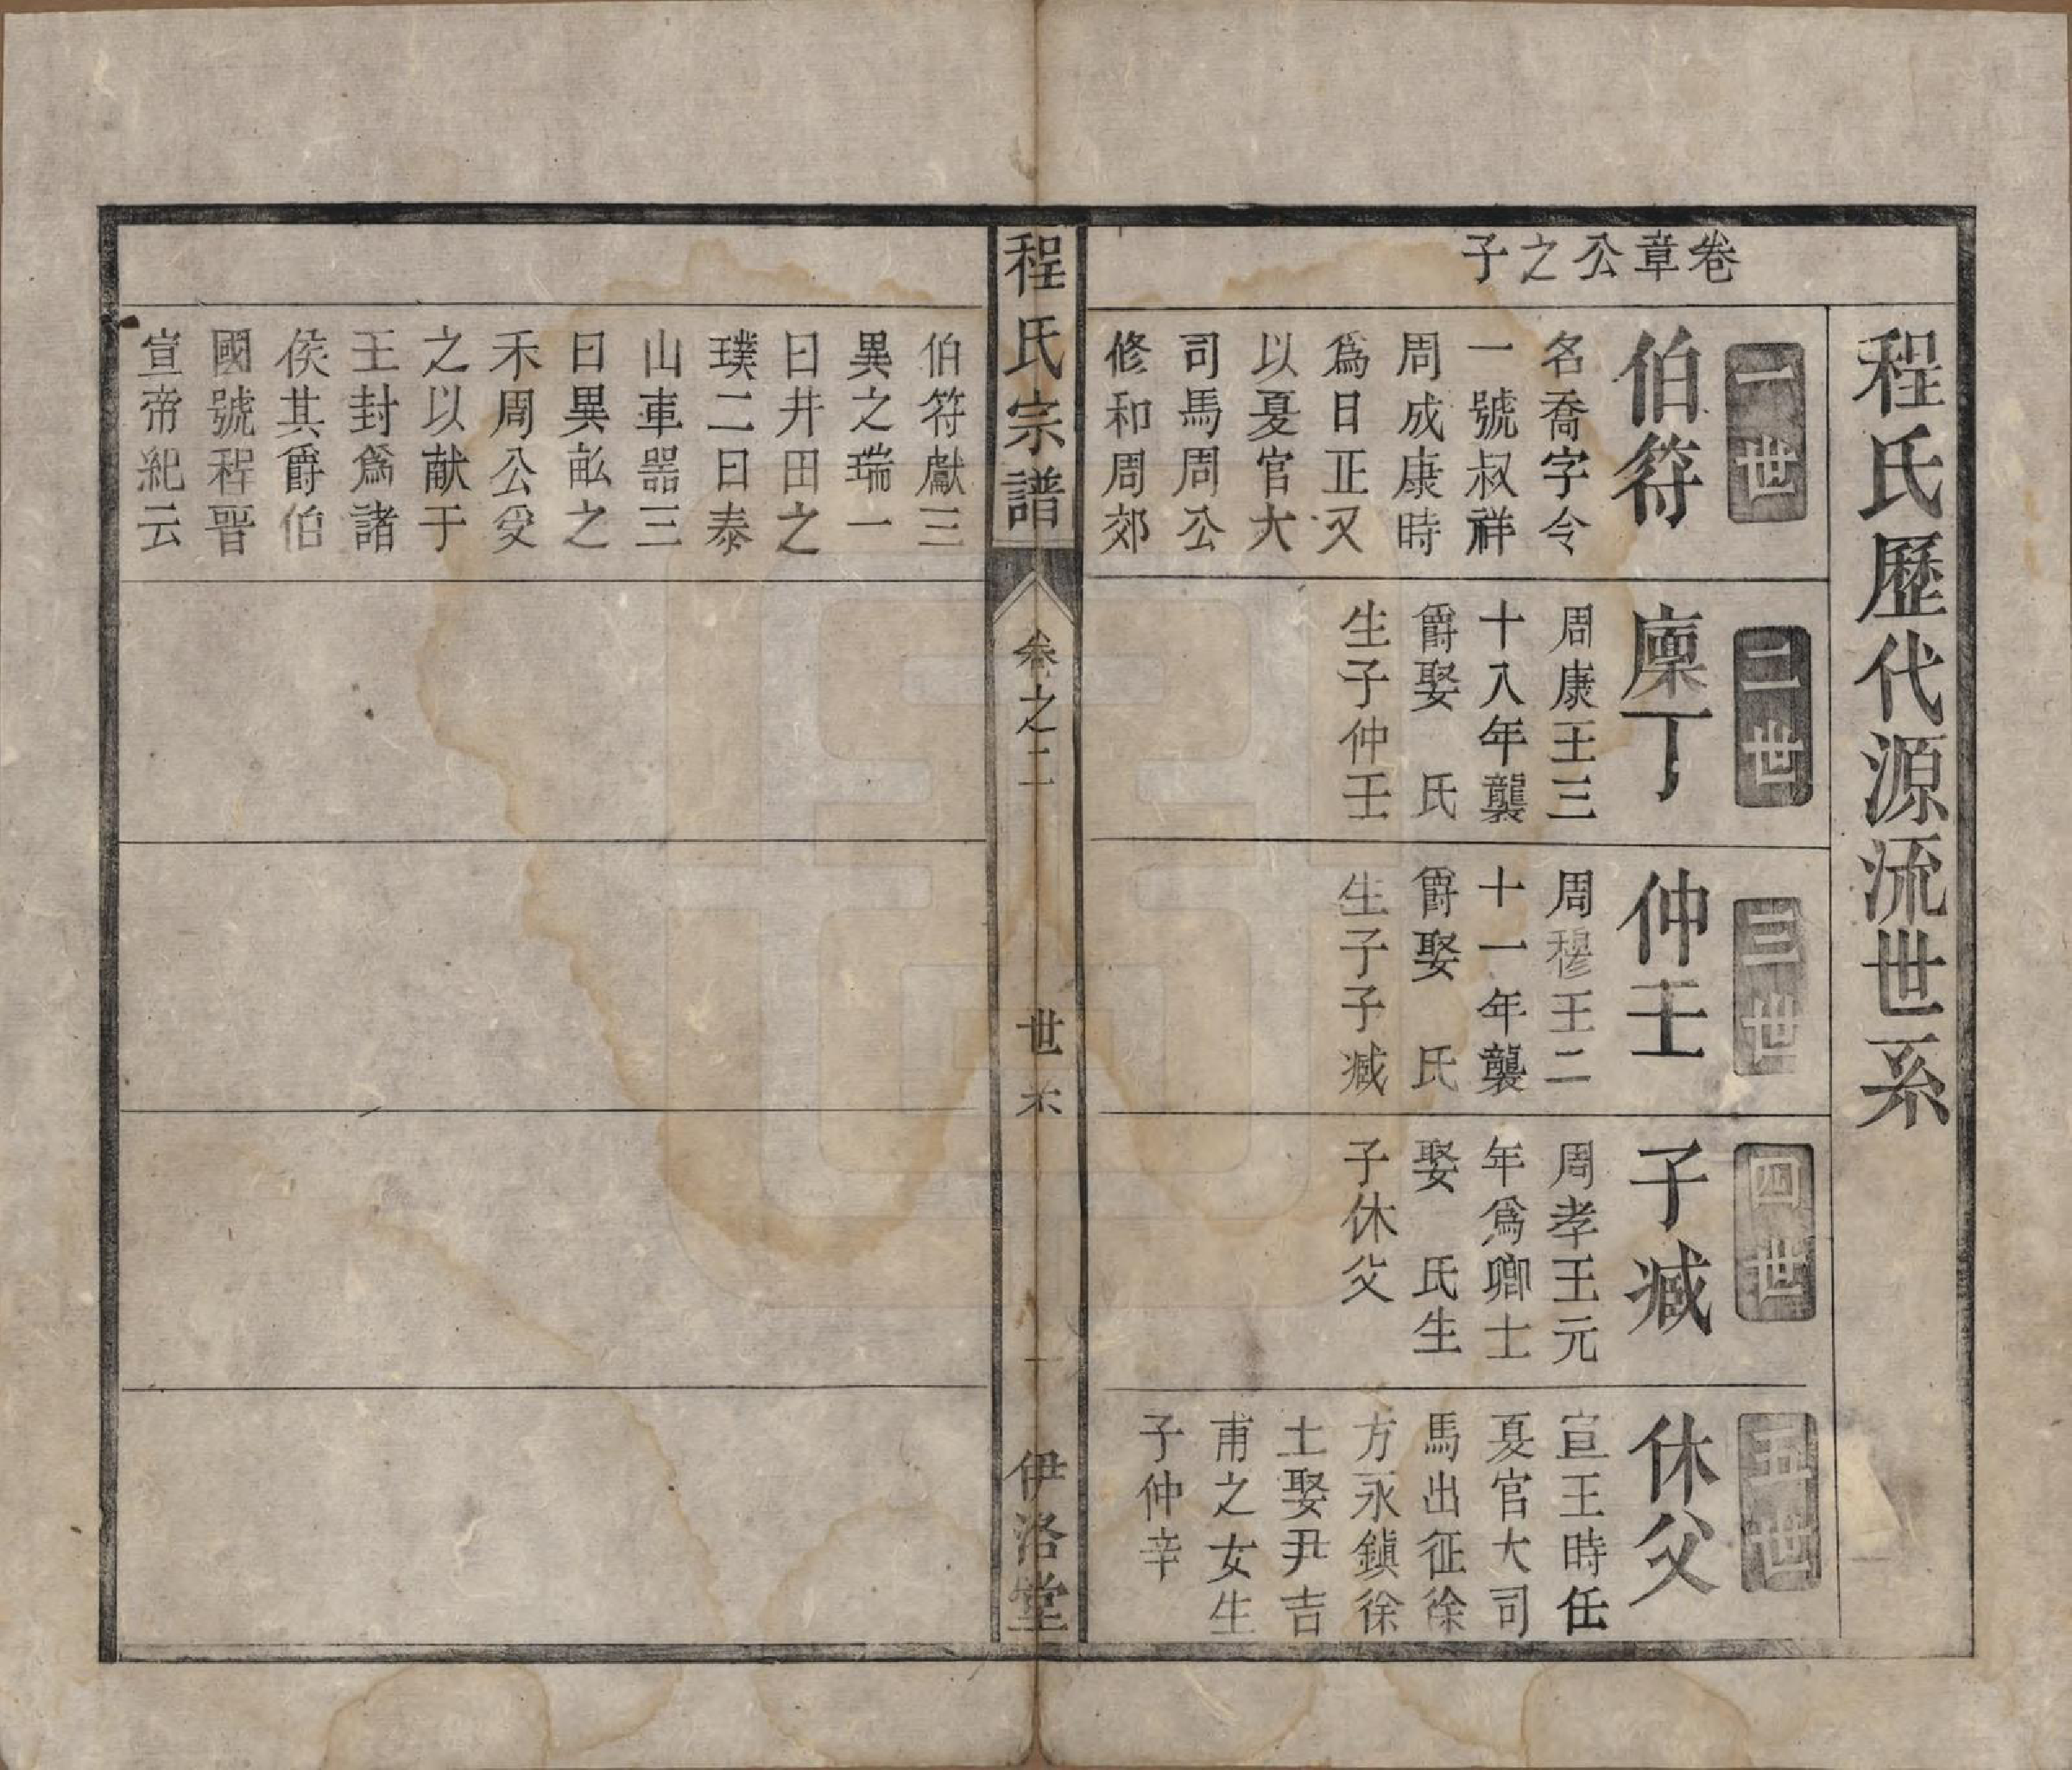 程氏歷代源流世系
卷章公之子
一世
伯符
名喬字令
一號叔祥
周成康時
爲日正又
以夏官大
司馬周公
修和周郊
二世
廩丁
周康王三
十八年襲
爵娶 氏
生子仲壬
三世
仲壬
周穆王二
十一年襲
爵娶 氏
生子子臧
四世
子臧
周孝王元
年爲卿士
娶 氏生
子休父
五世
休父
宣王時任
夏官大司
馬出征徐
方永鎭徐
土娶尹吉
甫之女生
子仲辛
程氏宗譜
卷之二
世系
一
伊洛堂
伯符獻三
異之瑞一
曰井田之
璞二曰泰
山車器三
曰異畝之
禾周公受
之以献于
王封爲諸
侯其爵伯
國號程晋
宣帝紀云